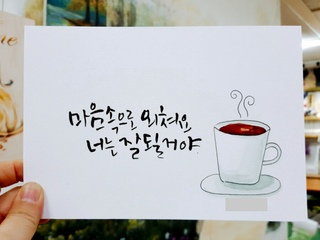 마음속으로 외쳐요
너는 잘 될거야